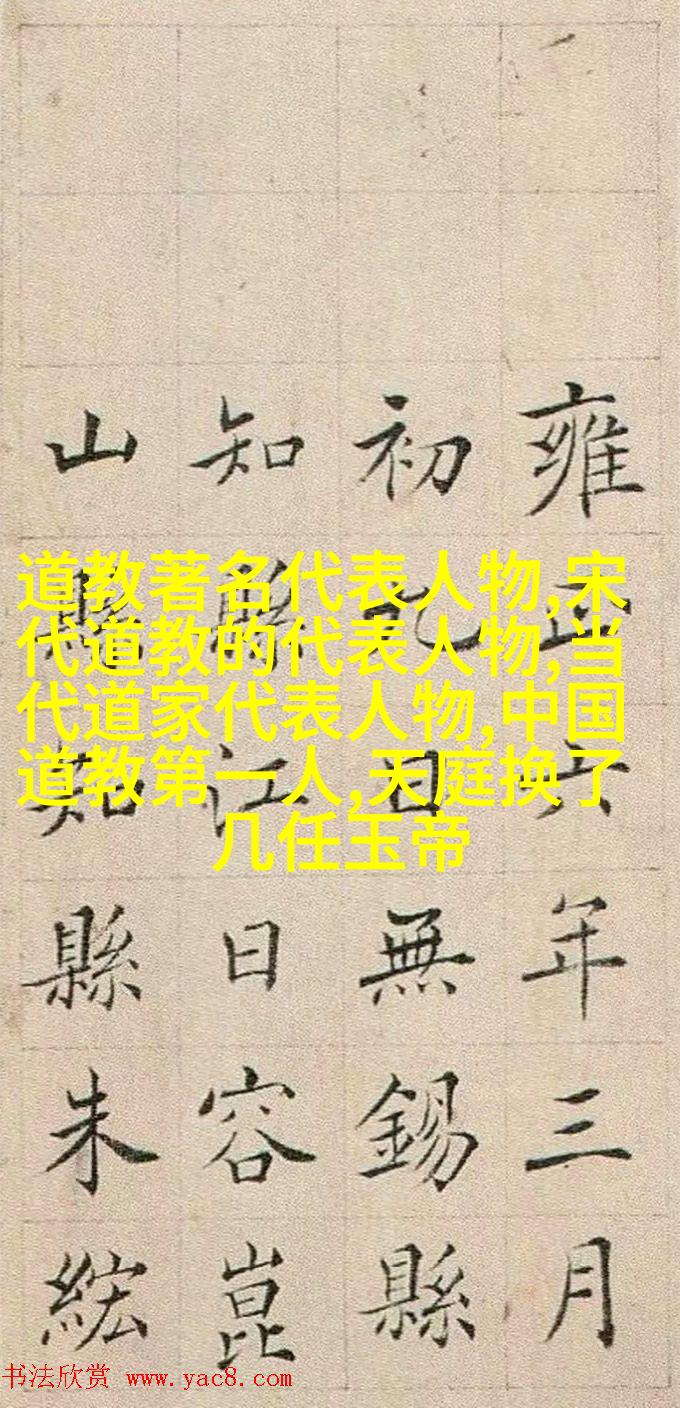 雍正六年三月
初九日無錫縣
知縣江日容崑
山縣知縣朱紘
道教著名代表人物,宋
代道教的代表人物,当
代道家代表人物,中国
道教第一人,天庭换了
几任玉帝
书法欣赏 www.yac8.com